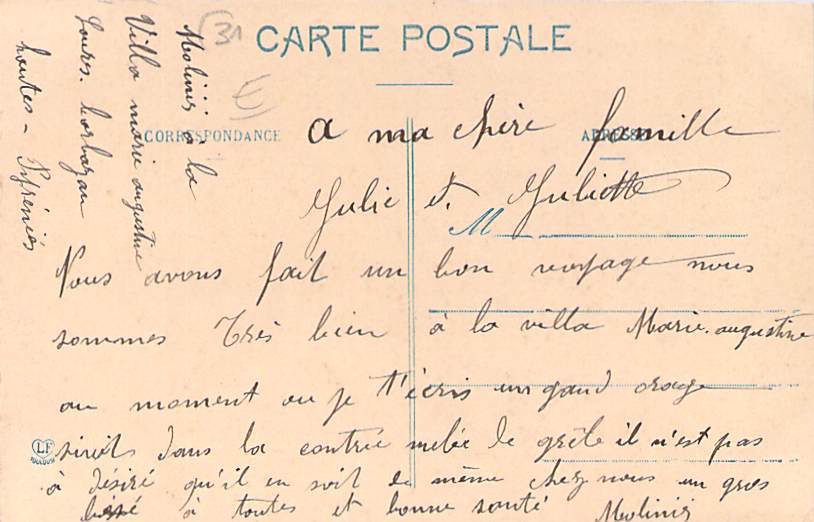 CARTE POSTALE
CORRESPONDANCE
ADRESSE
31
Molinis à la
Villa marie augustine
Loures. barbazan
hautes - Pyrénées
a ma chère famille
Julie et. Juliette
M
Nous avons fait un bon voyage nous
sommes très bien à la villa Marie. augustine
au moment ou je t'écris un gand orage
dans la contrée melée de grêle il n'est pas
à désiré qu'il en soit de même chez nous un gros
à toutes et bonne santé Molinis
LF